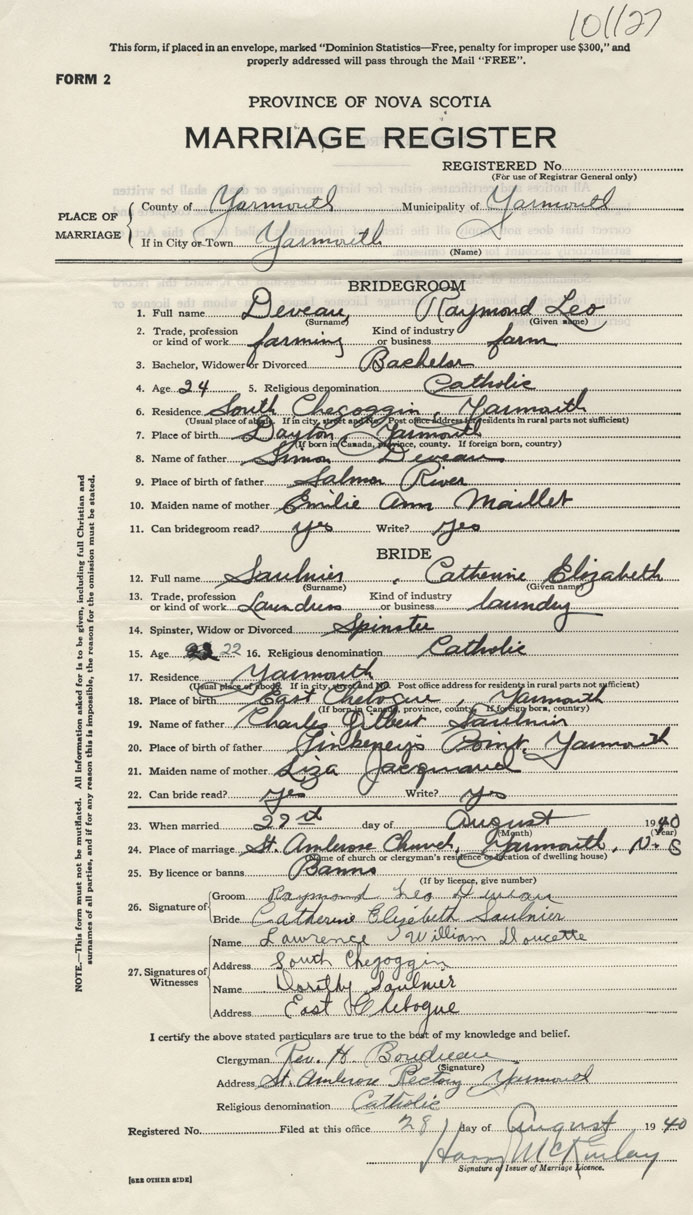 101127
This form, if placed in an envelope, marked "Dominion Statistics—Free, penalty for improper use $300," and
properly addressed will pass through the Mail "FREE".
FORM 2
PROVINCE OF NOVA SCOTIA
MARRIAGE REGISTER
REGISTERED No.
(For use of Registrar General only)
PLACE OF MARRIAGE
County of Yarmouth Municipality of Yarmouth
If in City or Town Yarmouth
(Name)
BRIDEGROOM
1. Full name Deveau, Raymond Leo
(Surname) (Given name)
2. Trade, profession or kind of work farming Kind of industry or business farm
3. Bachelor, Widower or Divorced Bachelor
4. Age 24 5. Religious denomination Catholic
6. Residence South Chegoggin, Yarmouth
(Usual place of abode. If in city, street and No. Post office address for residents in rural parts not sufficient)
7. Place of birth Dayton Yarmouth
(If born in Canada, province, county. If foreign born, country)
8. Name of father Simon Deveau
9. Place of birth of father Salmon River
10. Maiden name of mother Emilie Ann Maillet
11. Can bridegroom read? yes Write? yes
BRIDE
12. Full name Saulnier, Catherine Elizabeth
(Surname) (Given name)
13. Trade, profession or kind of work Laundress Kind of industry or business laundry
14. Spinster, Widow or Divorced Spinster
15. Age 22 16. Religious denomination Catholic
17. Residence Yarmouth
(Usual place of abode. If in city, street and No. Post office address for residents in rural parts not sufficient)
18. Place of birth East Chebogue, Yarmouth
(If born in Canada, province, county. If foreign born, country)
19. Name of father Charles Gilbert Saulnier
20. Place of birth of father Pinkeney's Point, Yarmouth
21. Maiden name of mother Liza Jacquard
22. Can bride read? yes Write? yes
23. When married day of August 1940
(Month) (Year)
24. Place of marriage St. Ambrose Church, Yarmouth, N. S
(Name of church or clergyman's residence or location of dwelling house)
25. By licence or banns Banns
(If by licence, give number)
26. Signature of
Groom Raymond Leo Deveau
Bride Catherine Elizabeth Saulnier
27. Signatures of Witnesses
Name Lawrence William Doucette
Address South Chegoggin
Name Dorithy Saulnier
Address East Chebogue
I certify the above stated particulars are true to the best of my knowledge and belief.
Clergyman Rev. H. Boudreau
(Signature)
Address St. Ambrose Rectory Yarmouth
Religious denomination Catholic
Registered No. Filed at this office 29 day of August 1940
Harry McKinlay
Signature of Issuer of Marriage Licence.
[SEE OTHER SIDE]
NOTE.—This form must not be mutilated. All information asked for is to be given, including full Christian and
surnames of all parties, and if for any reason this is impossible, the reason for the omission must be stated.